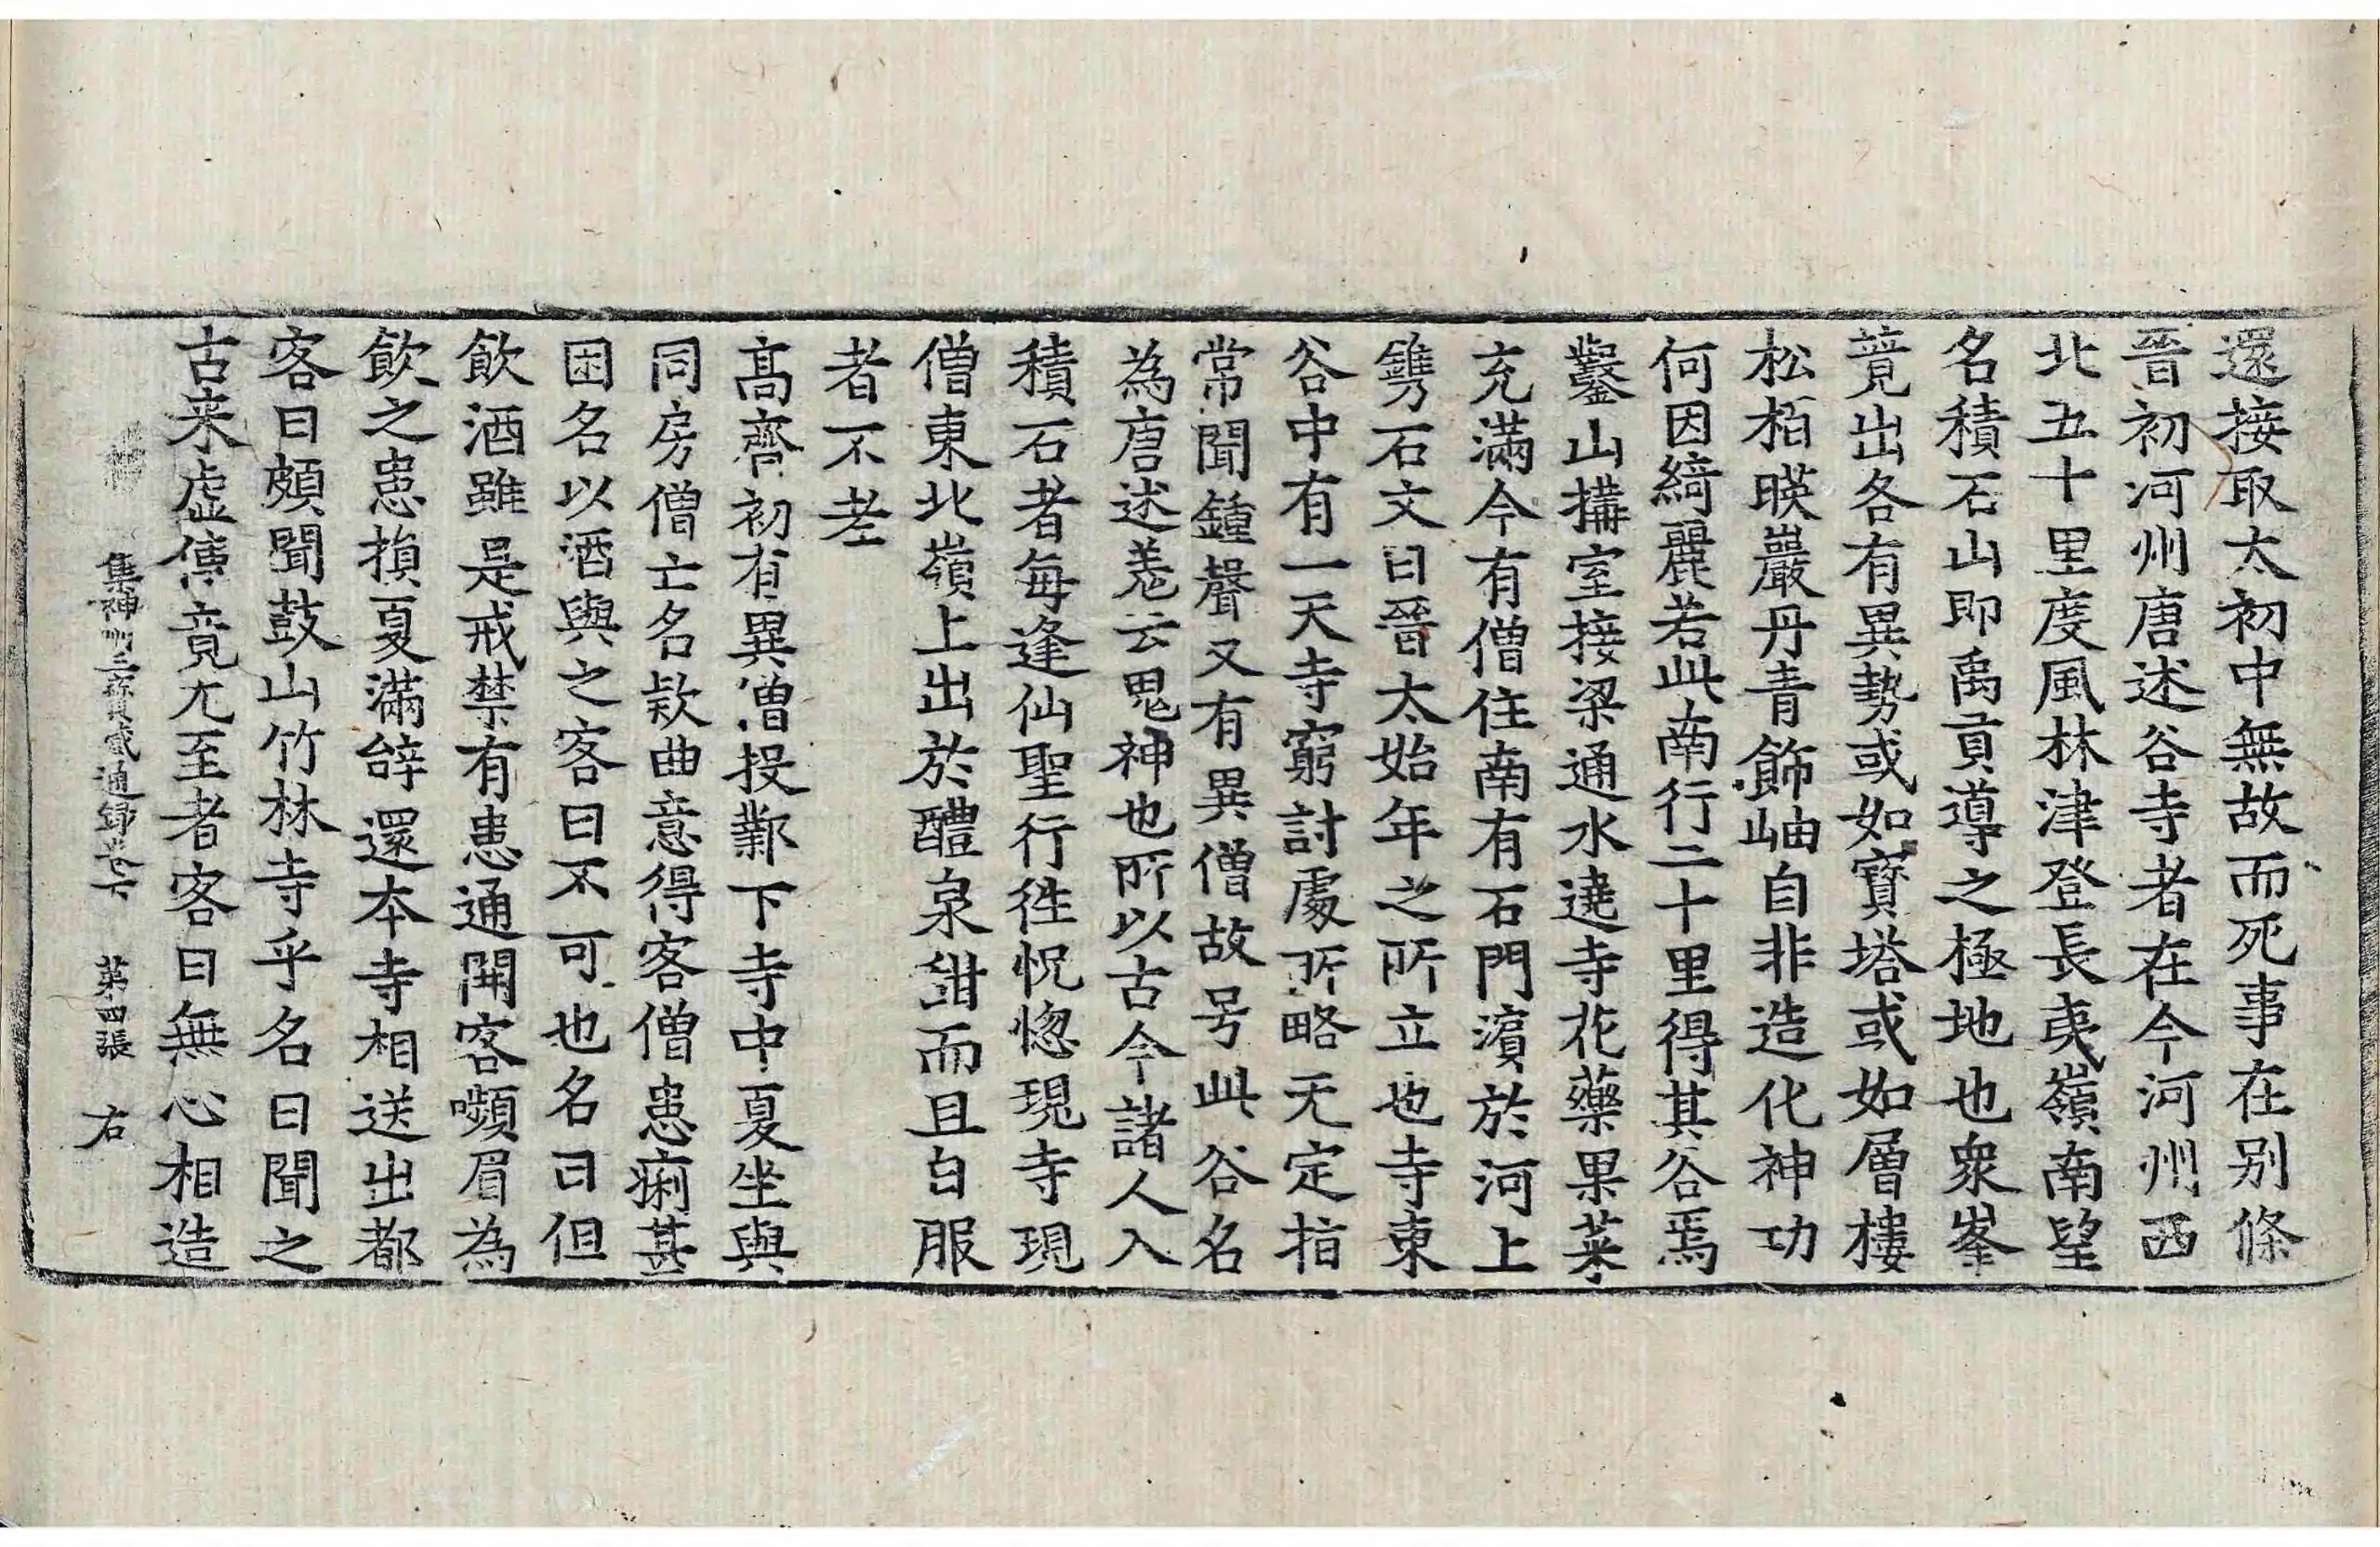 還接取太初中無故而死事在別條
晉初河州唐述谷寺者在今河州西
北五十里度風林津登長夷嶺南望
名積石山即禹貢導之極地也衆峯
竸出各有異勢或如寶塔或如層樓
松栢暎巖丹青飾岫自非造化神功
何因綺麗若此南行二十里得其谷焉
鑿山搆室接梁通水遶寺花藥果菜
充滿今有僧住南有石門濵於河上
鐫石文曰晉太始年之所立也寺東
谷中有一天寺窮討處所略无定指
常聞鍾聲又有異僧故号此谷名
為唐述羌云鬼神也所以古今諸人入
積石者每逢仙聖行徃怳惚現寺現
僧東北嶺上出於醴泉甜而且白服
者不老
髙齊初有異僧投鄴下寺中夏坐與
同房僧亡名款曲意得客僧患痢甚
困名以酒與之客曰不可也名曰但
飲酒雖是戒禁有患通開客嚬眉為
飲之患損夏滿辝還本寺相送出都
客曰頗聞鼓山竹林寺乎名曰聞之
古来虛傳竟尢至者客曰無心相造
集神州三寳感通録卷下 第四張 右